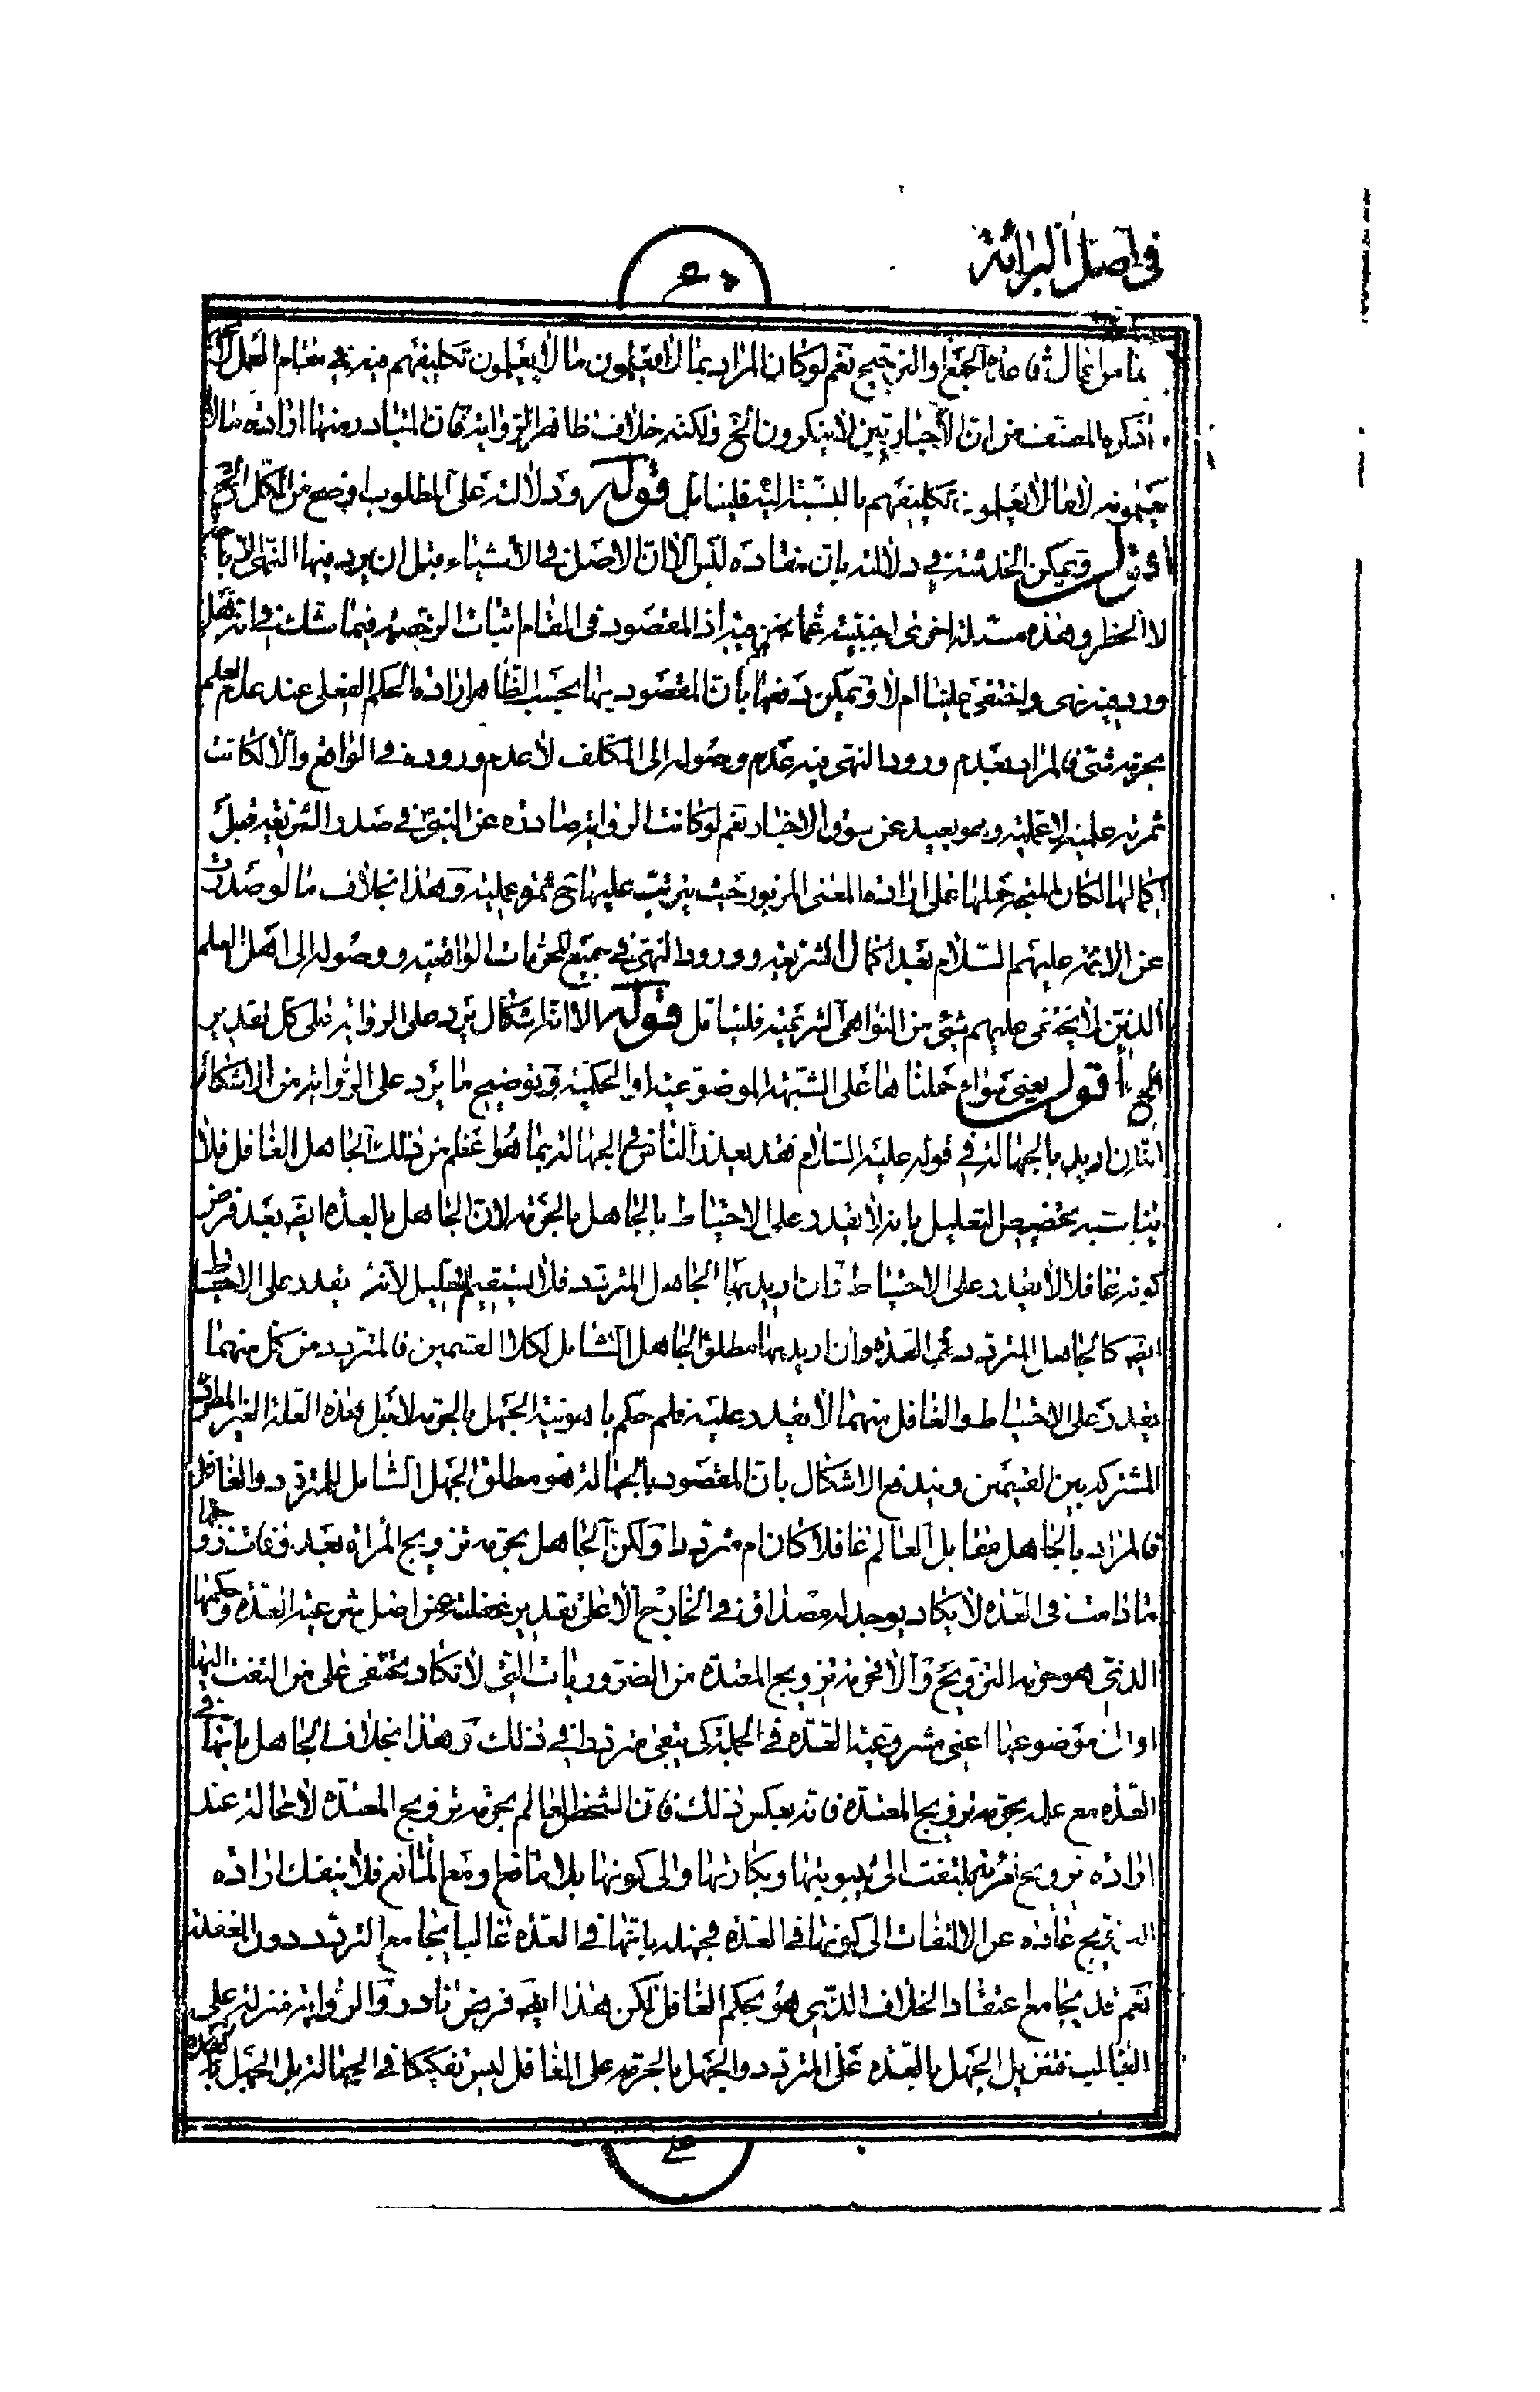 في اصل البرائة
من اعمال قاعدة الجمع او الترجيح نعم لو كان المراد بما لا يعلمون ما لا يعلمون تكليفهم فيه في مقام العمل لاتجه
ما ذكره المصنف من ان الأخباريين لا ينكرون الخ ولكنه خلاف ظاهر الرواية فان المتبادر منها ارادة ما لا
يعلمونه لا ما لا يعلمون تكليفهم بالنسبة اليه فليتامل قوله ودلالته على المطلوب اوضح من الكل الخ
أقول ويمكن الخدشة في دلالته بان مفاده ليس الا ان الاصل في الأشياء قبل ان يرد فيها النهي الاباحة
لا الحظر وهذه مسئلة اخرى اجنبية عما نحن فيه اذ المقصود في المقام اثبات الرخصة فيما شك في انه هل
ورد فيه نهى واختفى علينا ام لا ويمكن دفعها بأن المقصود بها بحسب الظاهر ارادة الحكم الفعلى عند عدم العلم
بحرمة شئ فالمراد بعدم ورود النهى فيه عدم وصوله الى المكلف لا عدم وروده في الواقع والا لكانت
ثمرته علمية لا عملية وهو بعيد عن سوق الاخبار نعم لو كانت الرواية صادرة عن النبي ص في صدر الشريعة قبل
اكمالها لكان المتجه حملها على ارادة المعنى المزبور حيث يترتب عليها ح ثمرة عملية وهذا بخلاف ما لو صدرت
عن الائمة عليهم السلام بعد اكمال الشريعة وورود النهى في جميع المحرمات الواقعية ووصوله الى اهل العلم
الذين لا يختفى عليهم شئ من النواهى الشرعية فليتامل قوله الا انه اشكال يرد على الرواية على كل تقدير
الخ أقول يعنى سواء حملناها على الشبهة الموضوعية او الحكمية وتوضيح ما يرد على الرواية من الاشكال
انه ان اريد بالجهالة في قوله عليه السلام فقد يعذر الناس في الجهالة بما هو اعظم من ذلك الجاهل الغافل فلا
يناسبه تخصيص التعليل بانه لا يقدر على الاحتياط بالجاهل بالحرمة لان الجاهل بالعدة ايضا بعد فرض
كونه غافلا لا يقدر على الاحتياط وان اريد بها الجاهل المتردد فلا يستقيم التعليل لأنه يقدر على الاحتياط
ايضا كالجاهل المتردد في العدة وان اريد بها مطلق الجاهل الشامل لكلا القسمين فالمتردد من كل منهما
يقدر على الاحتياط والغافل منهما لا يقدر عليه فلم حكم باهونية الجهل بالحرمة لأجل هذه العلة الغير المطردة
المشتركة بين القسمين ويندفع الاشكال بان المقصود بالجهالة هو مطلق الجهل الشامل للمتردد والغافل
فالمراد بالجاهل مقابل العالم غافلا كان ام مترددا ولكن الجاهل بحرمة تزويج المرأة بعد وفات زوجها
ما دامت في العدة لا يكاد يوجد له مصداق في الخارج الا على تقدير غفلته عن اصل شرعية العدة وحكمها
الذي هو حرمة التزويج والا فحرمة تزويج المعتدة من الضروريات التي لا تكاد يختفى على من التفت اليها
او الى موضوعها اعنى مشروعية العدة في الجملة كى يبقى مترددا في ذلك وهذا بخلاف الجاهل بانها في
العدة مع علمه بحرمة تزويج المعتدة فانه بعكس ذلك فان الشخص العالم بحرمة تزويج المعتدة لا محالة عند
ارادة تزويج امرئة يلتفت الى ثيبوبيتها وبكارتها والى كونها بلا مانع او مع المانع فلا ينفك ارادة
التزويج عادة عن الالتفات الى كونها في العدة فجهله بانها في العدة غالبا يجامع التردد دون الغفلة
نعم قد يجامع اعتقاد الخلاف الذي هو بحكم الغافل لكن هذا ايضا فرض نادر والرواية منزلة على
الغالب فتنزيل الجهل بالعدة على المتردد والجهل بالحرمة على الغافل ليس تفكيكا في الجهالة بل الجهل